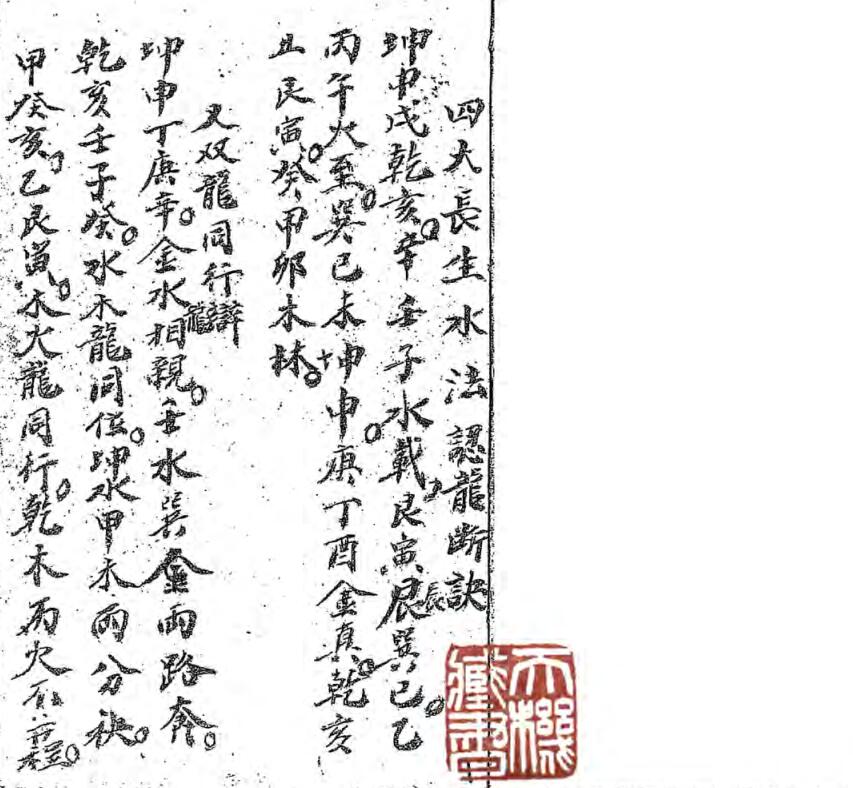 四大長生水法認龍断訣
坤申戌乾亥。辛壬子水載。艮寅辰巽巳。乙
丙午火至。巽巳未坤申。庚丁酉金真。乾亥
丑艮寅。癸甲卯木林。
又双龍同行辯
坤申丁庚辛。金水相親。壬水巽金両路奔。
乾亥壬子癸。水木龍同位。坤水甲木両分袂。
甲癸亥。乙艮寅。木火龍同行。乾木丙火
天機
藏書